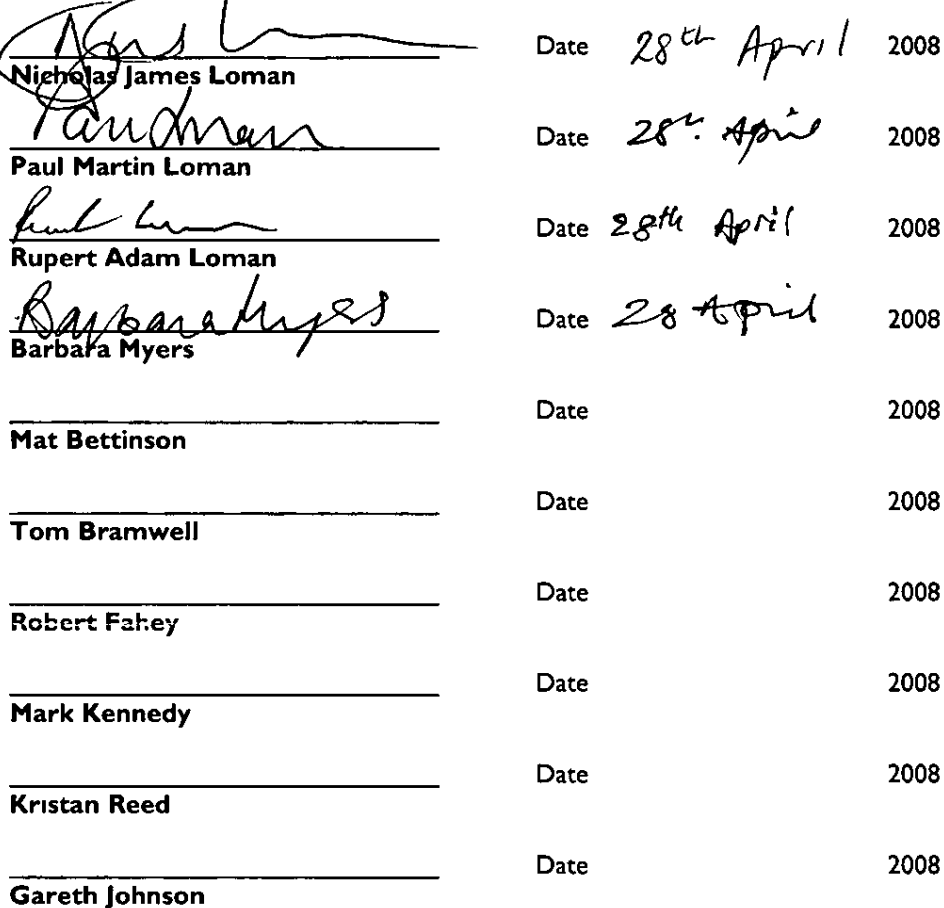 Date 28th April 2008
Nicholas James Loman
Date 28th April 2008
Paul Martin Loman
Date 28th April 2008
Rupert Adam Loman
Barbara Myers Date 28 April 2008
Barbara Myers
Date 2008
Mat Bettinson
Date 2008
Tom Bramwell
Date 2008
Robert Fahey
Date 2008
Mark Kennedy
Date 2008
Kristan Reed
Date 2008
Gareth Johnson